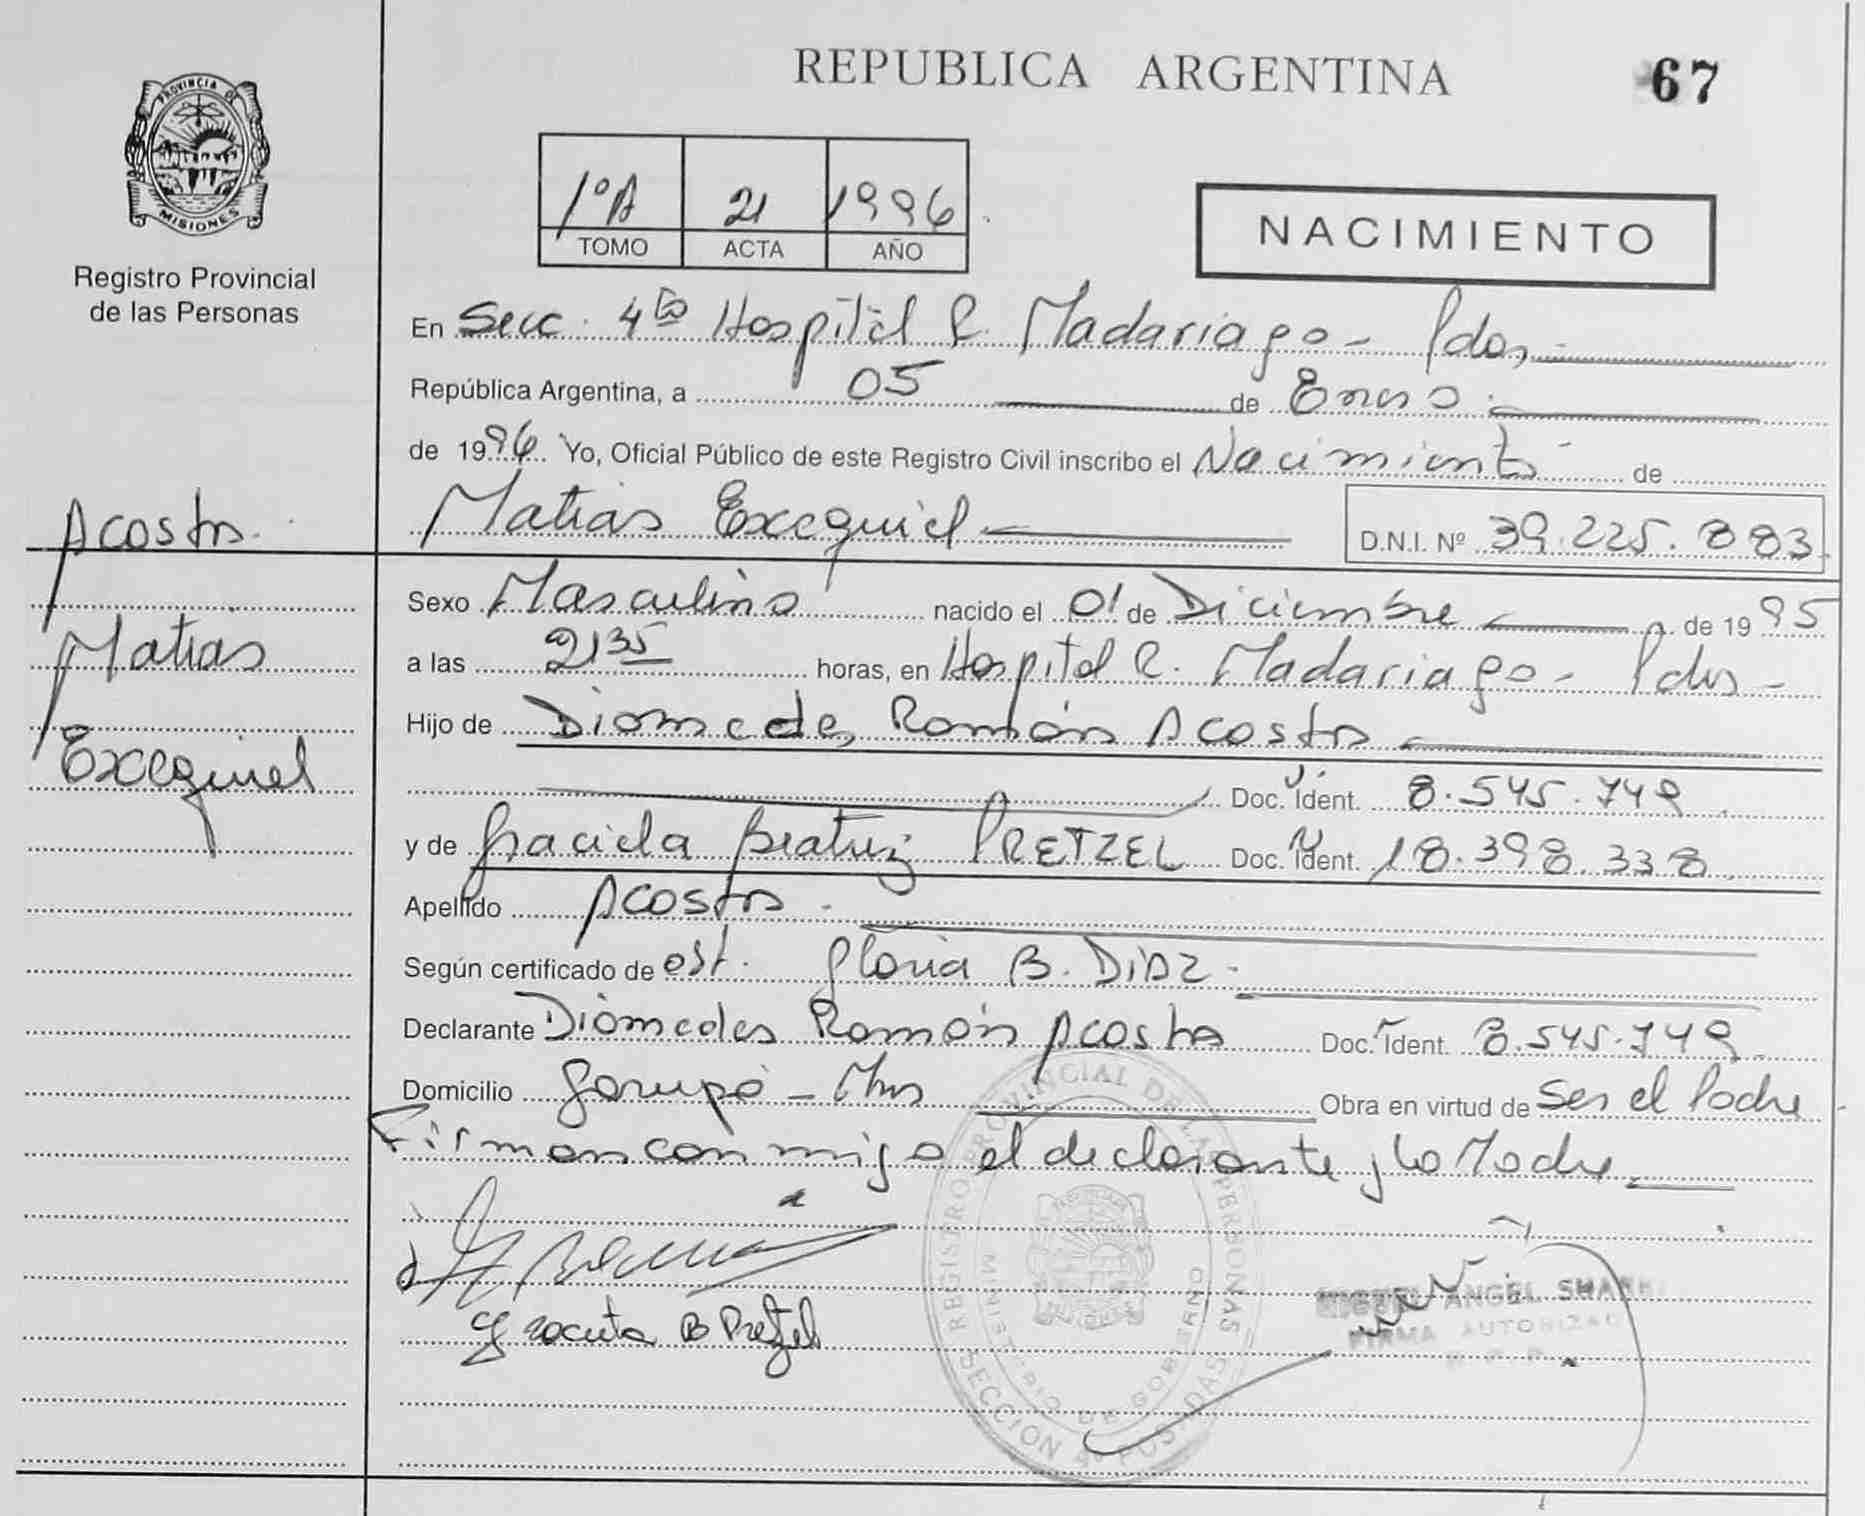 REPUBLICA ARGENTINA
67
PROVINCIA DE
MISIONES
Registro Provincial
de las Personas
1º A 21 1996
TOMO ACTA AÑO
NACIMIENTO
En Secc. 4ta Hospital R. Madariaga - Pdas,
República Argentina, a 05 de Enero
de 1996 Yo, Oficial Público de este Registro Civil inscribo el Nacimiento de
Matias Exequiel D.N.I. Nº 39.225.883
Acosta
Matias
Exequiel
Sexo Masculino nacido el 01 de Diciembre de 1995
a las 21 35 horas, en Hospital R. Madariaga - Pdas -
Hijo de Diomedes Ramón Acosta
Doc. Ident. 8.545.749
y de Graciela Beatriz PRETZEL Doc. Ident. 18.398.338
Apellido Acosta
Según certificado de est. Gloria B. Diaz -
Declarante Diomedes Ramón Acosta Doc. Ident. 8.545.749
Domicilio Garupá - Mnes Obra en virtud de Ser el Padre
Firman conmigo el declarante y la Madre
Graciela B Pretzel
REGISTRO PROVINCIAL DE LAS PERSONAS
MINISTERIO DE GOBIERNO
SECCION 4º POSADAS
ANGEL
FIRMA AUTORIZADA